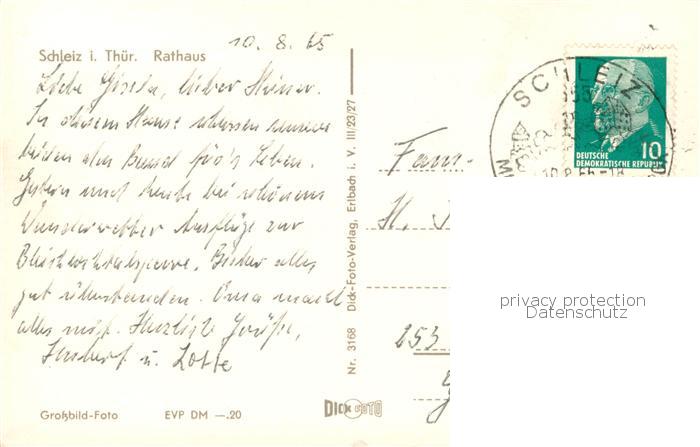 10. 8. 65
Schleiz i. Thür. Rathaus
Liebe Gisela, lieber Heiner.
In diesem Hause schlossen unsere
beiden den Bund für's Leben.
Gestern und heute bei schönem
Wanderwetter Ausflüge zur
Bleichlochtalsperre. Bisher alles
gut überstanden. Oma macht
alles mit. Herzliche Grüße,
Herbert u. Lotte
Großbild-Foto EVP DM —.20
Nr. 3168 Dick-Foto-Verlag, Erlbach i. V. III/23/27
DICK FOTO
SCHLEIZ
10.8.65-18
DEUTSCHE
DEMOKRATISCHE REPUBLIK
10
Fam.
H.
253
privacy protection
Datenschutz